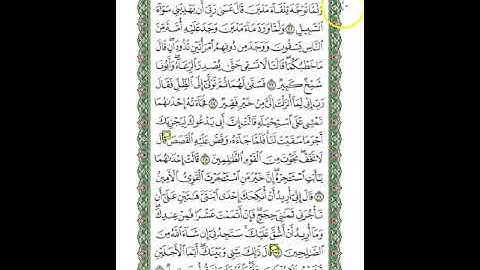 وَلَمَّا تَوَجَّهَ تِلْقَآءَ مَدْيَنَ قَالَ عَسَىٰ رَبِّىٓ أَن يَهْدِيَنِى سَوَآءَ
ٱلسَّبِيلِ ٢٢ وَلَمَّا وَرَدَ مَآءَ مَدْيَنَ وَجَدَ عَلَيْهِ أُمَّةً مِّنَ
ٱلنَّاسِ يَسْقُونَ وَوَجَدَ مِن دُونِهِمُ ٱمْرَأَتَيْنِ تَذُودَانِ قَالَ
مَا خَطْبُكُمَا قَالَتَا لَا نَسْقِى حَتَّىٰ يُصْدِرَ ٱلرِّعَآءُ وَأَبُونَا
شَيْخٌ كَبِيرٌ ٢٣ فَسَقَىٰ لَهُمَا ثُمَّ تَوَلَّىٰٓ إِلَى ٱلظِّلِّ فَقَالَ
رَبِّ إِنِّى لِمَآ أَنزَلْتَ إِلَىَّ مِنْ خَيْرٍ فَقِيرٌ ٢٤ فَجَآءَتْهُ إِحْدَىٰهُمَا
تَمْشِى عَلَى ٱسْتِحْيَآءٍ قَالَتْ إِنَّ أَبِى يَدْعُوكَ لِيَجْزِيَكَ
أَجْرَ مَا سَقَيْتَ لَنَا فَلَمَّا جَآءَهُۥ وَقَصَّ عَلَيْهِ ٱلْقَصَصَ قَالَ
لَا تَخَفْ نَجَوْتَ مِنَ ٱلْقَوْمِ ٱلظَّٰلِمِينَ ٢٥ قَالَتْ إِحْدَىٰهُمَا
يَٰٓأَبَتِ ٱسْتَـْٔجِرْهُ إِنَّ خَيْرَ مَنِ ٱسْتَـْٔجَرْتَ ٱلْقَوِىُّ ٱلْأَمِينُ
٢٦ قَالَ إِنِّىٓ أُرِيدُ أَنْ أُنكِحَكَ إِحْدَى ٱبْنَتَىَّ هَٰتَيْنِ عَلَىٰٓ أَن
تَأْجُرَنِى ثَمَٰنِىَ حِجَجٍ فَإِنْ أَتْمَمْتَ عَشْرًا فَمِنْ عِندِكَ
وَمَآ أُرِيدُ أَنْ أَشُقَّ عَلَيْكَ سَتَجِدُنِىٓ إِن شَآءَ ٱللَّهُ مِنَ
ٱلصَّٰلِحِينَ ٢٧ قَالَ ذَٰلِكَ بَيْنِى وَبَيْنَكَ أَيَّمَا ٱلْأَجَلَيْنِ